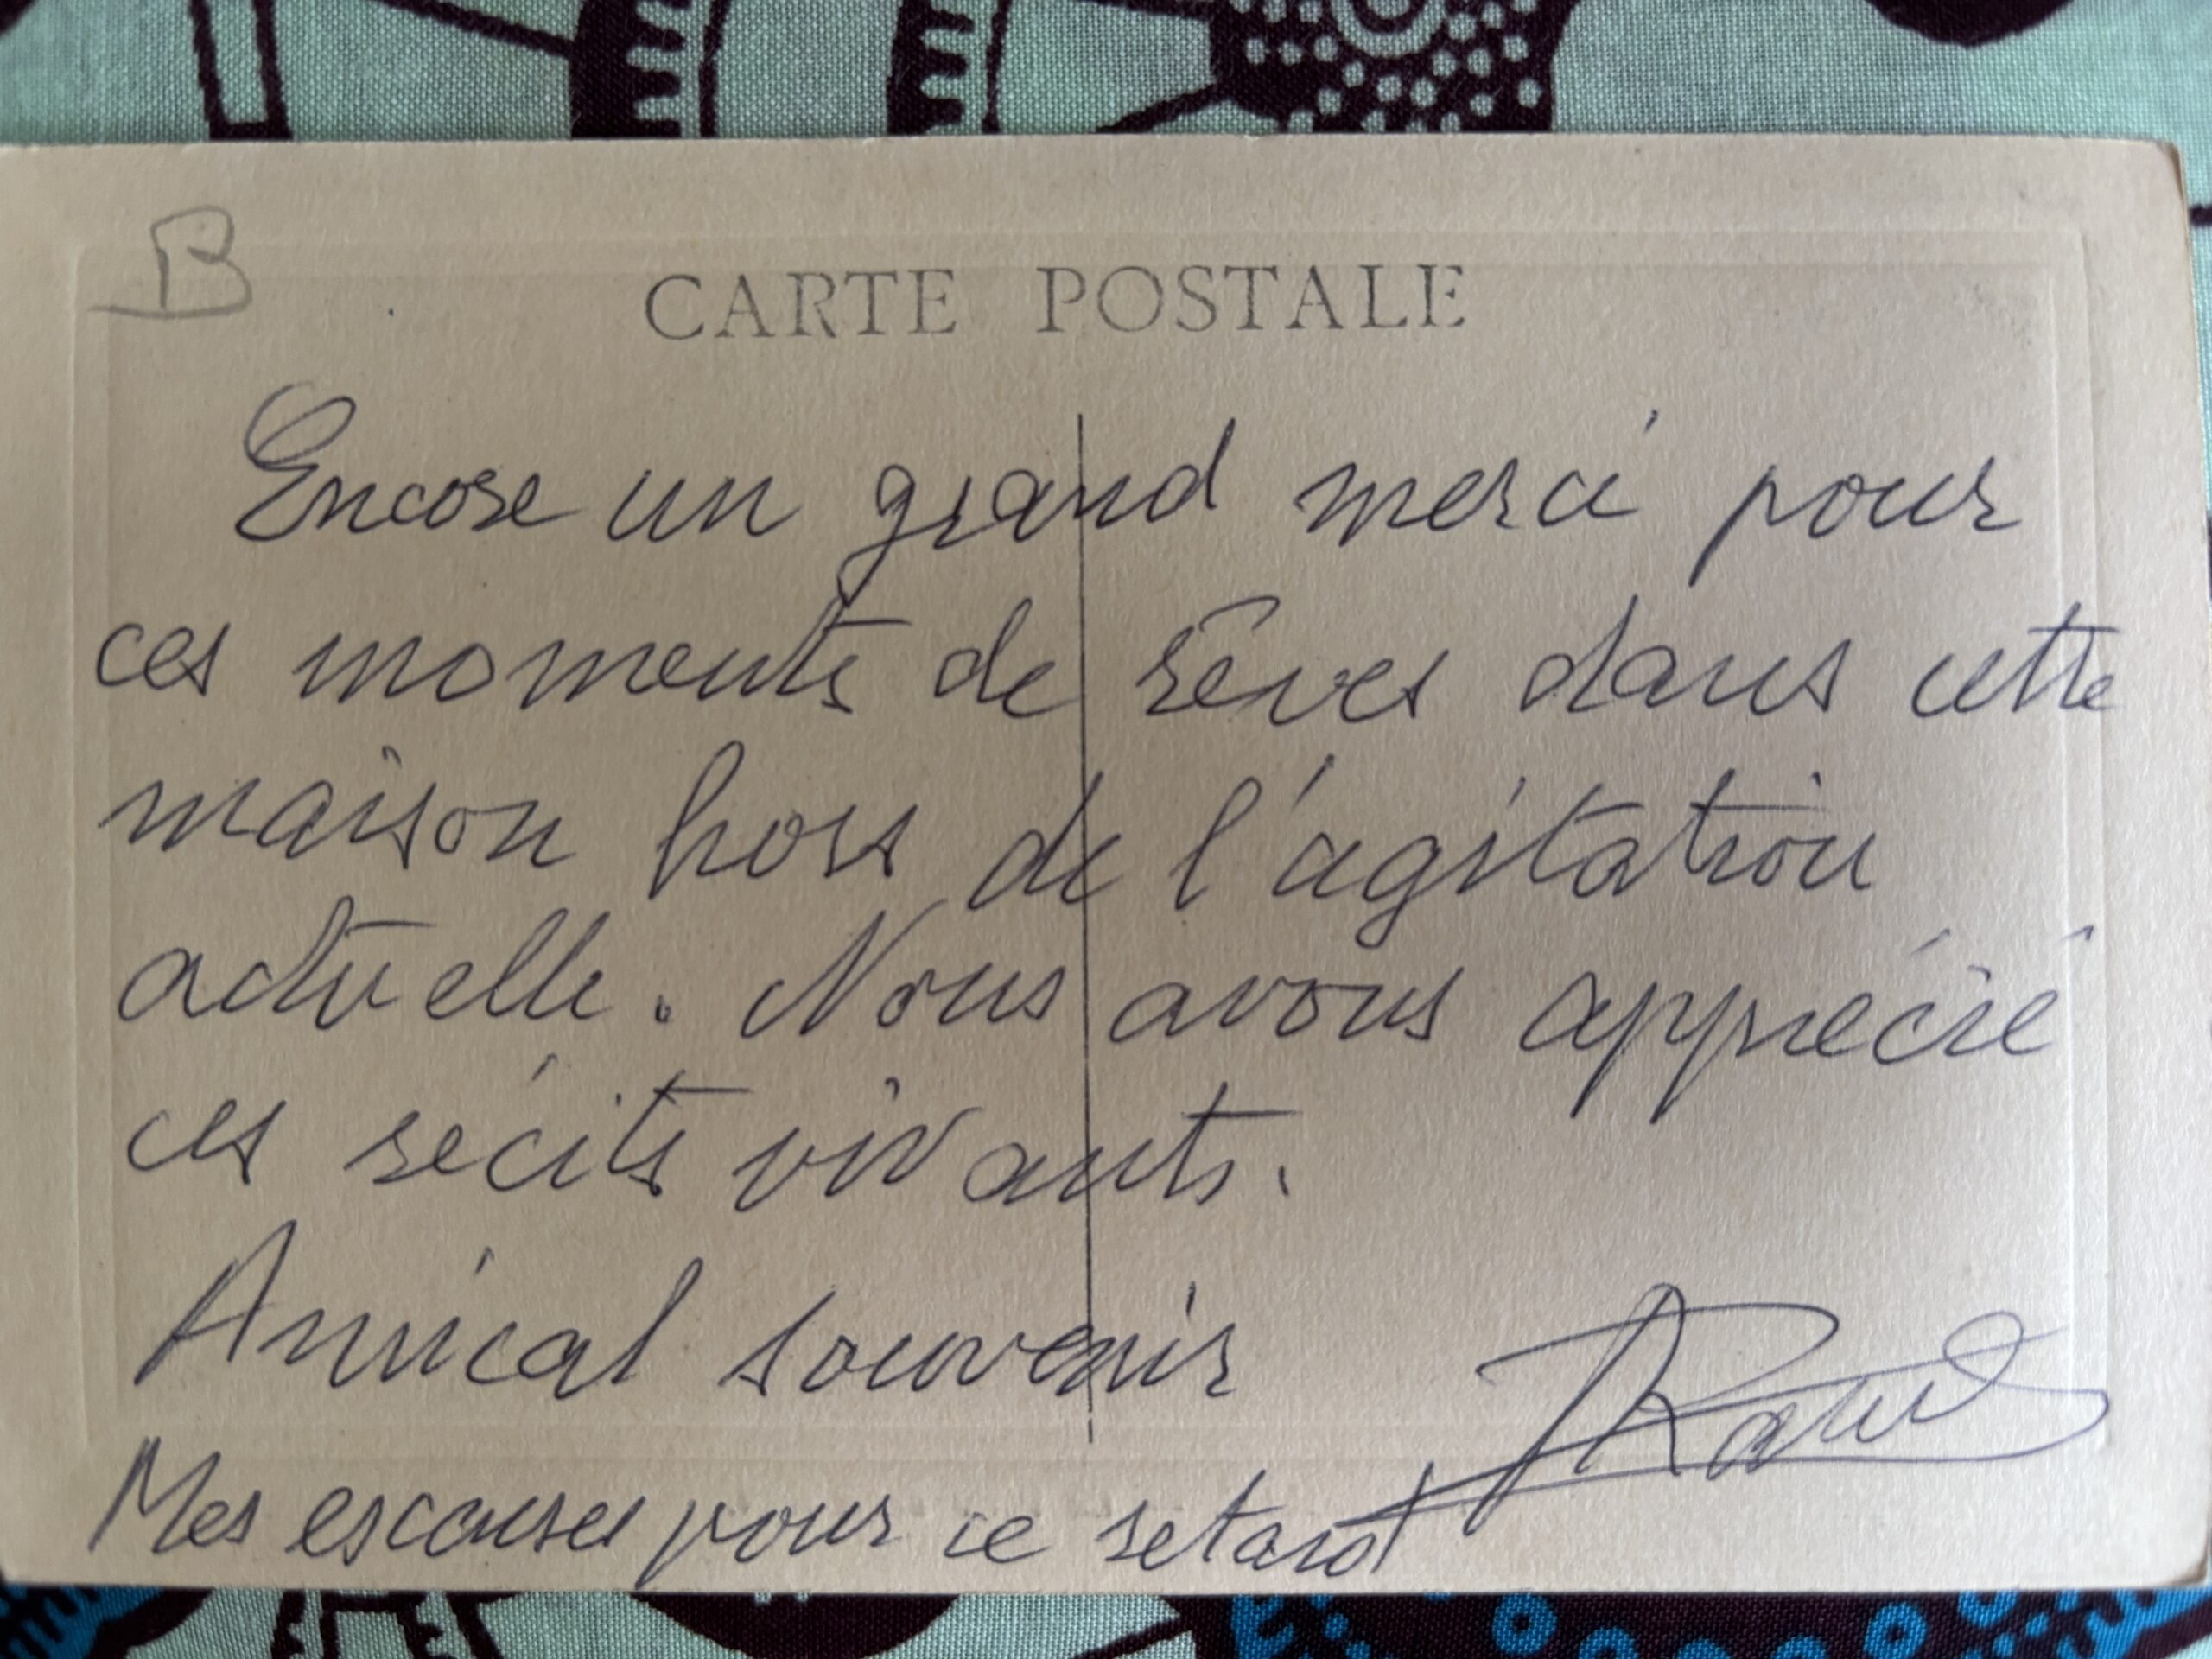 B
CARTE POSTALE
Encore un grand merci pour
ces moments de rêves dans cette
maison hors de l'agitation
actuelle. Nous avons apprécié
ces récits vivants.
Amical souvenir
Mes excuses pour ce retard